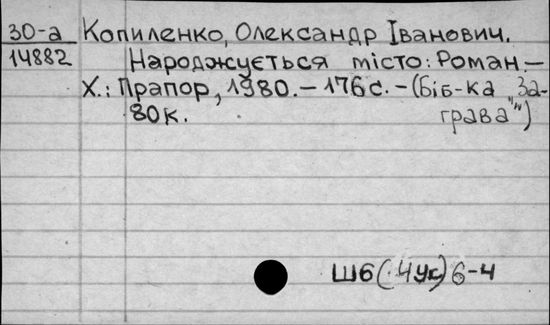 30-а Копиленко, Олександр Іванович.
14882 Народжується місто: Роман –
Х.: Прапор, 1980. – 176 с. – (Біб-ка „За-
80к. грава")
Ш6(4Ук)6-4